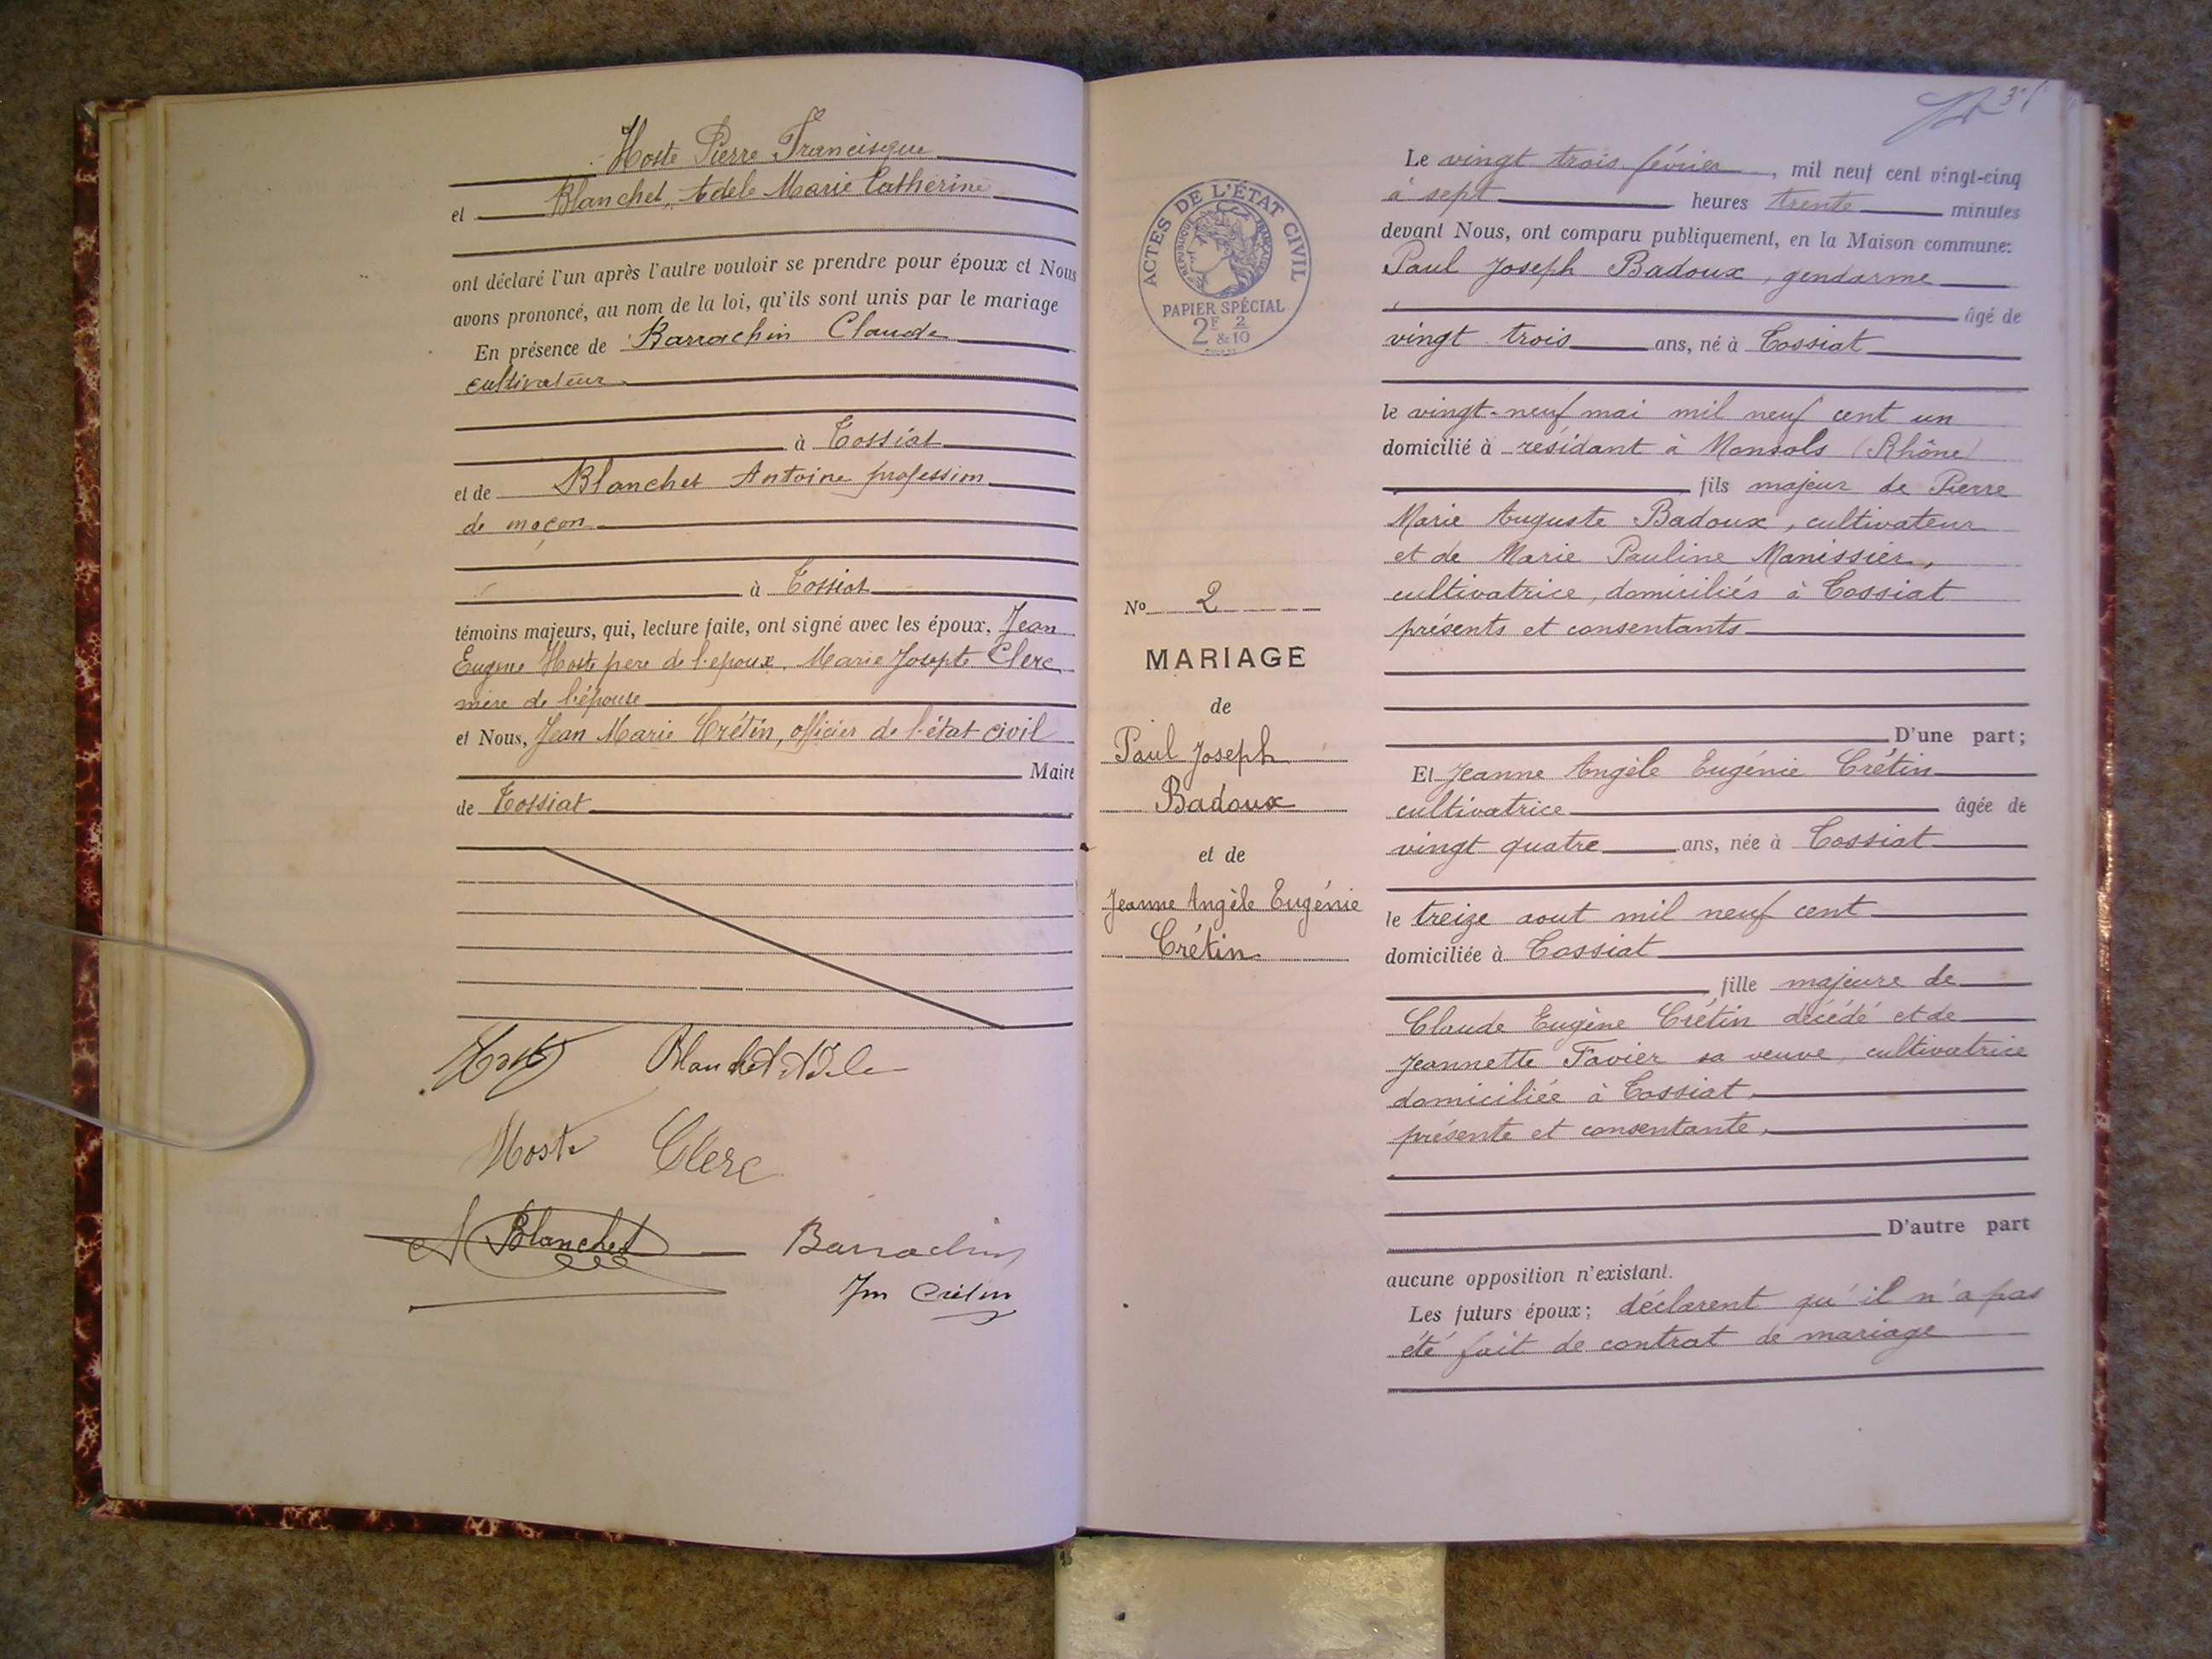 Hoste Pierre Francisque
et Blanchet, Adèle Marie Catherine
ont déclaré l'un après l'autre vouloir se prendre pour époux et Nous
avons prononcé, au nom de la loi, qu'ils sont unis par le mariage
En présence de Barrachin Claude
cultivateur
à Tossiat
et de Blanchet Antoine profession
de maçon
à Tossiat
témoins majeurs, qui, lecture faite, ont signé avec les époux, Jean
Eugène Hoste père de l'époux, Marie Josepte Clerc
mère de l'épouse
et Nous, Jean Marie Crétin, officier de l'état civil
Maire
de Tossiat
Hoste Blanchet Adèle
Hoste Clerc
A Blanchet Barrachin
Jm Crétin
ACTES DE L'ÉTAT CIVIL
RÉPUBLIQUE FRANÇAISE
PAPIER SPÉCIAL
2F & 2/10
No 2
MARIAGE
de
Paul Joseph
Badoux
et de
Jeanne Angèle Eugénie
Crétin
Le vingt trois février, mil neuf cent vingt-cinq
à sept heures trente minutes
devant Nous, ont comparu publiquement, en la Maison commune:
Paul Joseph Badoux, gendarme
âgé de
vingt trois ans, né à Tossiat
le vingt-neuf mai mil neuf cent un
domicilié à résidant à Monsols (Rhône)
fils majeur de Pierre
Marie Auguste Badoux, cultivateur
et de Marie Pauline Manissier,
cultivatrice, domiciliés à Tossiat
présents et consentants
D'une part;
Et Jeanne Angèle Eugénie Crétin
cultivatrice âgée de
vingt quatre ans, née à Tossiat
le treize aout mil neuf cent
domiciliée à Tossiat
fille majeure de
Claude Eugène Crétin décédé et de
Jeannette Favier sa veuve, cultivatrice
domiciliée à Tossiat,
présente et consentante,
D'autre part
aucune opposition n'existant.
Les futurs époux; déclarent qu'il n'a pas
été fait de contrat de mariage